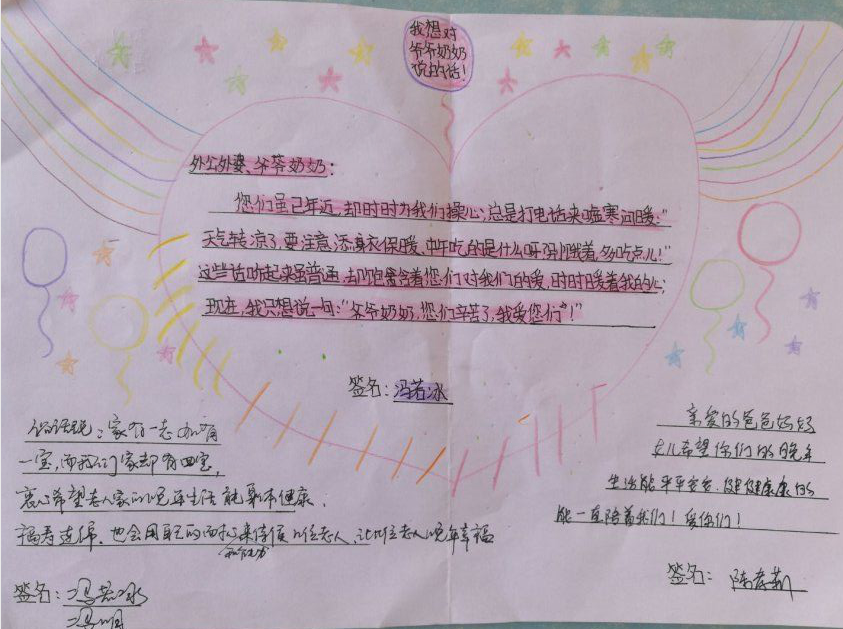 我想对
爷爷奶奶
说的话！
外公外婆、爷爷奶奶：
您们虽已年近，却时时为我们操心，总是打电话来嘘寒问暖：“
天气转凉了，要注意添身衣保暖、中午吃的是什么呀，别饿着，多吃点儿！”
这些话听起来虽普通，却饱含着您们对我们的爱，时时暖着我的心，
现在，我只想说一句：“爷爷奶奶，您们辛苦了，我爱您们”！
签名：冯若冰
俗话说：家有一老如有
一宝，而我们家却有四宝，
衷心希望老人家的晚年生活能身体健康，
福寿连绵、也会用自己的来待候位老人，让位老人晚年幸福
签名：冯若冰
亲爱的爸爸妈妈
女儿希望你们的晚年
生活能平平安安，健健康康的
能一直陪着我们！爱你们！
签名：